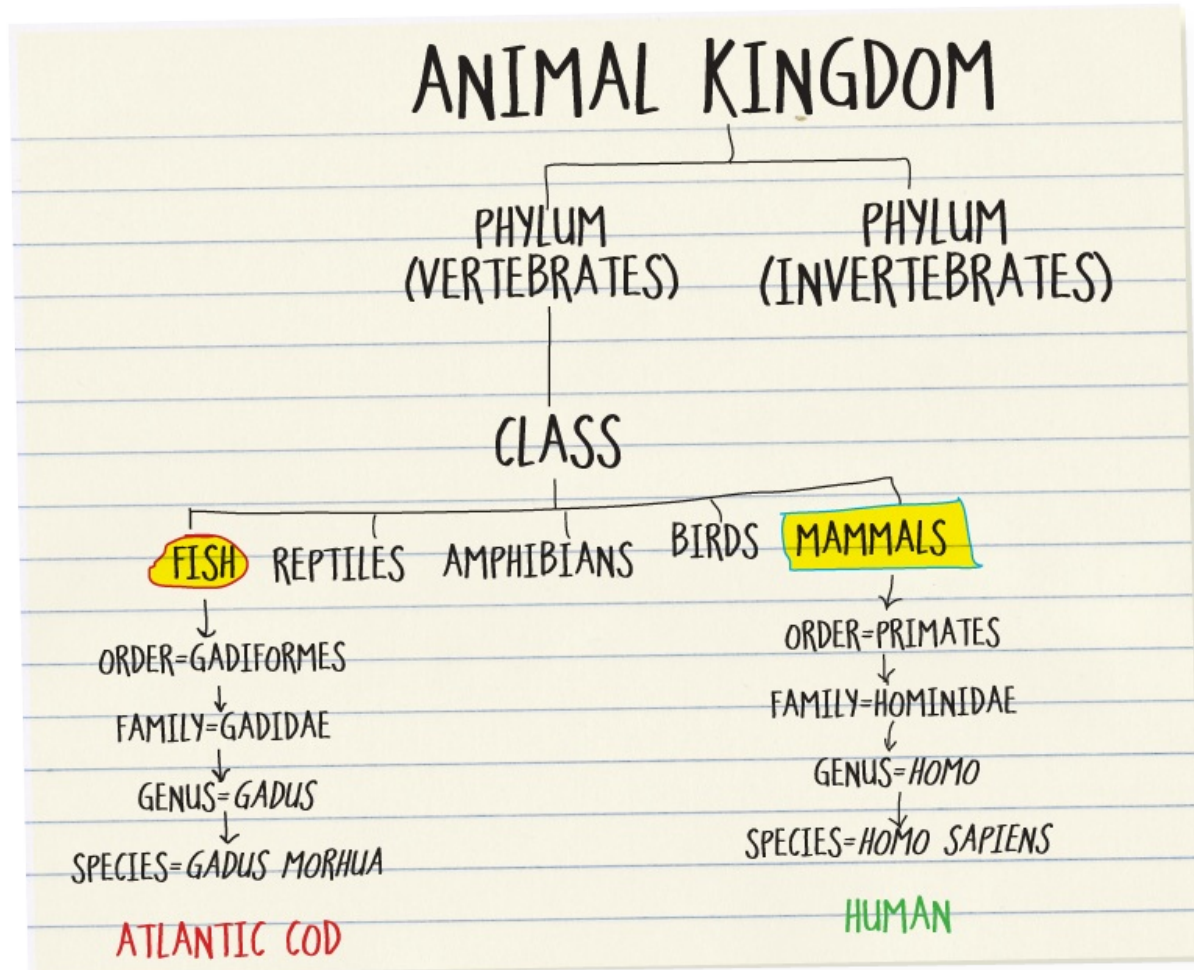 ANIMAL KINGDOM
PHYLUM
(VERTEBRATES)
PHYLUM
(INVERTEBRATES)
CLASS
FISH
REPTILES
AMPHIBIANS
BIRDS
MAMMALS
ORDER=GADIFORMES
FAMILY=GADIDAE
GENUS=GADUS
SPECIES=GADUS MORHUA
ATLANTIC COD
ORDER=PRIMATES
FAMILY=HOMINIDAE
GENUS=HOMO
SPECIES=HOMO SAPIENS
HUMAN